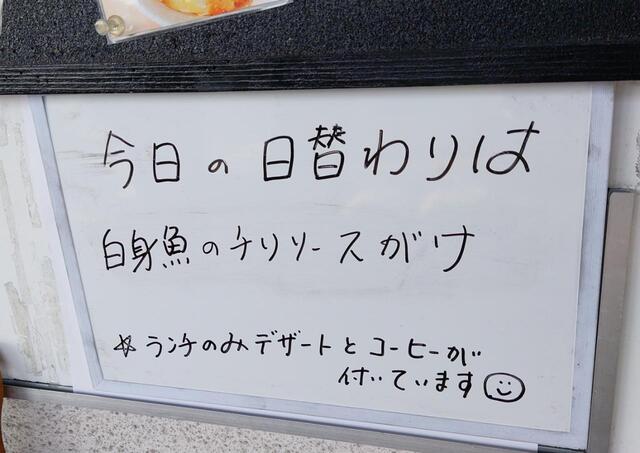 今日の日替わりは
白身魚のチリソースがけ
☆ランチのみデザートとコーヒーが
付いています☺